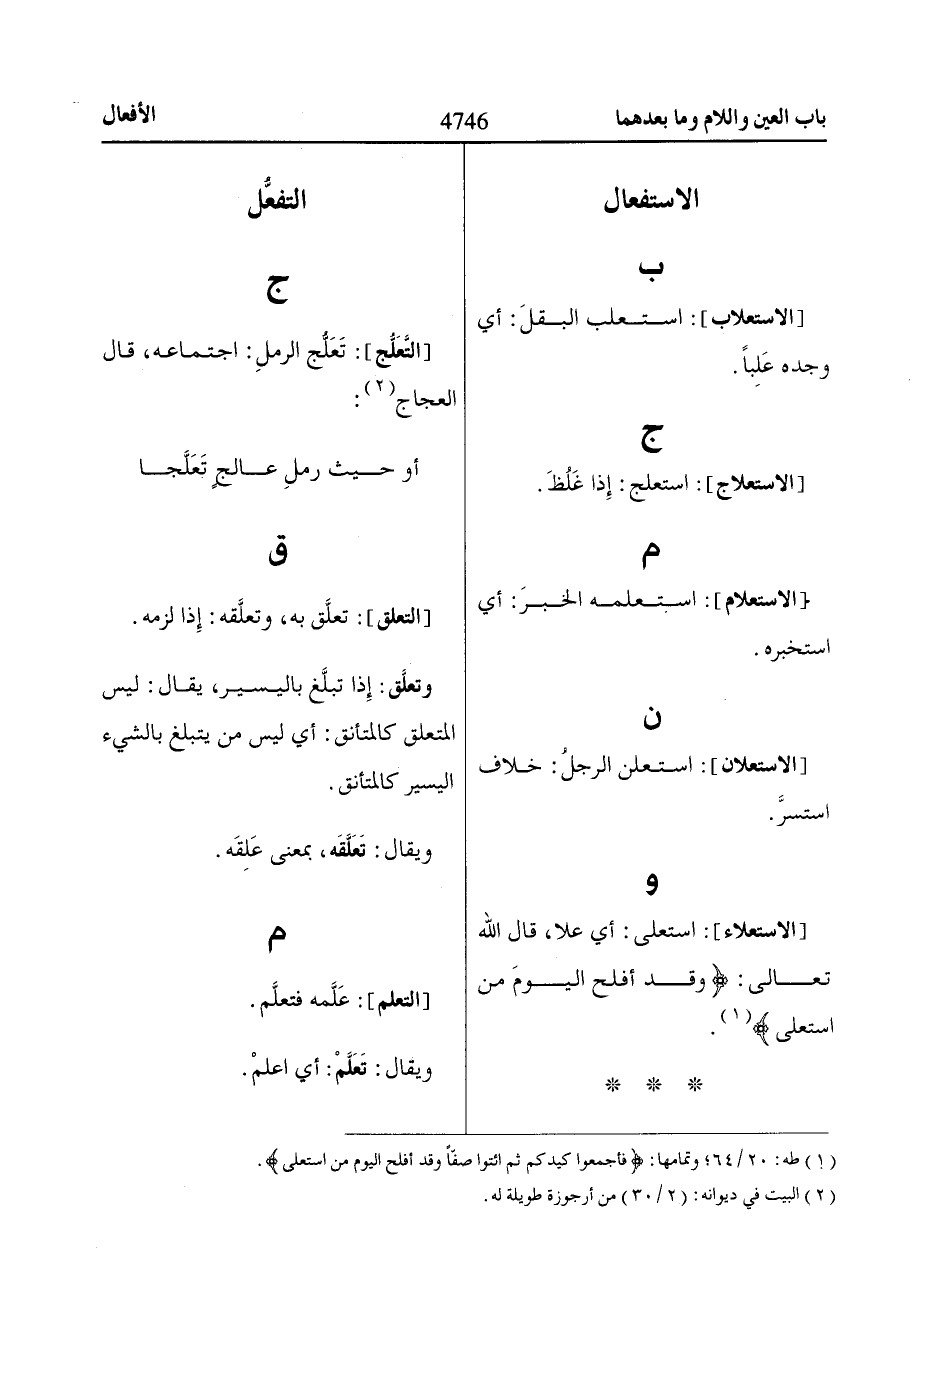 باب العين واللام وما بعدهما 4746 الأفعال
الاستفعال
ب
[الاستعلاب]: استعلب البقلَ: أي
وجده عَلِباً.
ج
[الاستعلاج]: استعلج: إِذا غَلُظَ.
م
{الاستعلام]: استعلمه الخبرَ: أي
استخبره.
ن
[الاستعلان]: استعلن الرجلُ: خلاف
استسرَّ.
و
[الاستعلاء]: استعلى: أي علا، قال الله
تعالى: ﴿وقد أفلح اليومَ من
استعلى﴾(١).
* * *
التفعُّل
ج
[التَّعَلُّج]: تَعَلُّج الرملِ: اجتماعه، قال
العجاج(٢):
أو حيث رملِ عالجٍ تَعَلَّجا
ق
[التعلق]: تعلَّق به، وتعلَّقه: إِذا لزمه.
وتعلَّق: إِذا تبلَّغ باليسير، يقال: ليس
المتعلق كالمتأنق: أي ليس من يتبلغ بالشيء
اليسير كالمتأنق.
ويقال: تَعَلَّقَه، بمعنى عَلِقَه.
م
[التعلم]: عَلَّمه فتعلَّم.
ويقال: تَعَلَّمْ: أي اعلمْ.
(١) طه: ٢٠/ ٦٤؛ وتمامها: ﴿فأجمعوا كيدكم ثم ائتوا صفّاً وقد أفلح اليوم من استعلى﴾.
(٢) البيت في ديوانه: (٢/ ٣٠) من أرجوزة طويلة له.